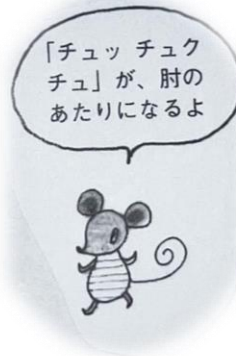 「チュッ チュク
チュ」が、肘の
あたりになるよ